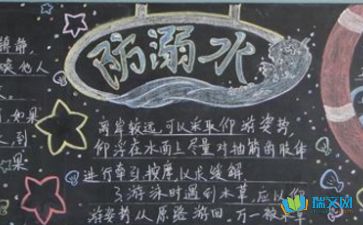 防溺水
唤他人
如果
到
果
离岸较远,可以采取仰游姿势
仰浮在水面上尽量对抽筋的肢体
进行牵引、按摩以求缓解
3、游泳时遇到水草,应以仰
游姿势从原路游回。万一被水草
瑞文网